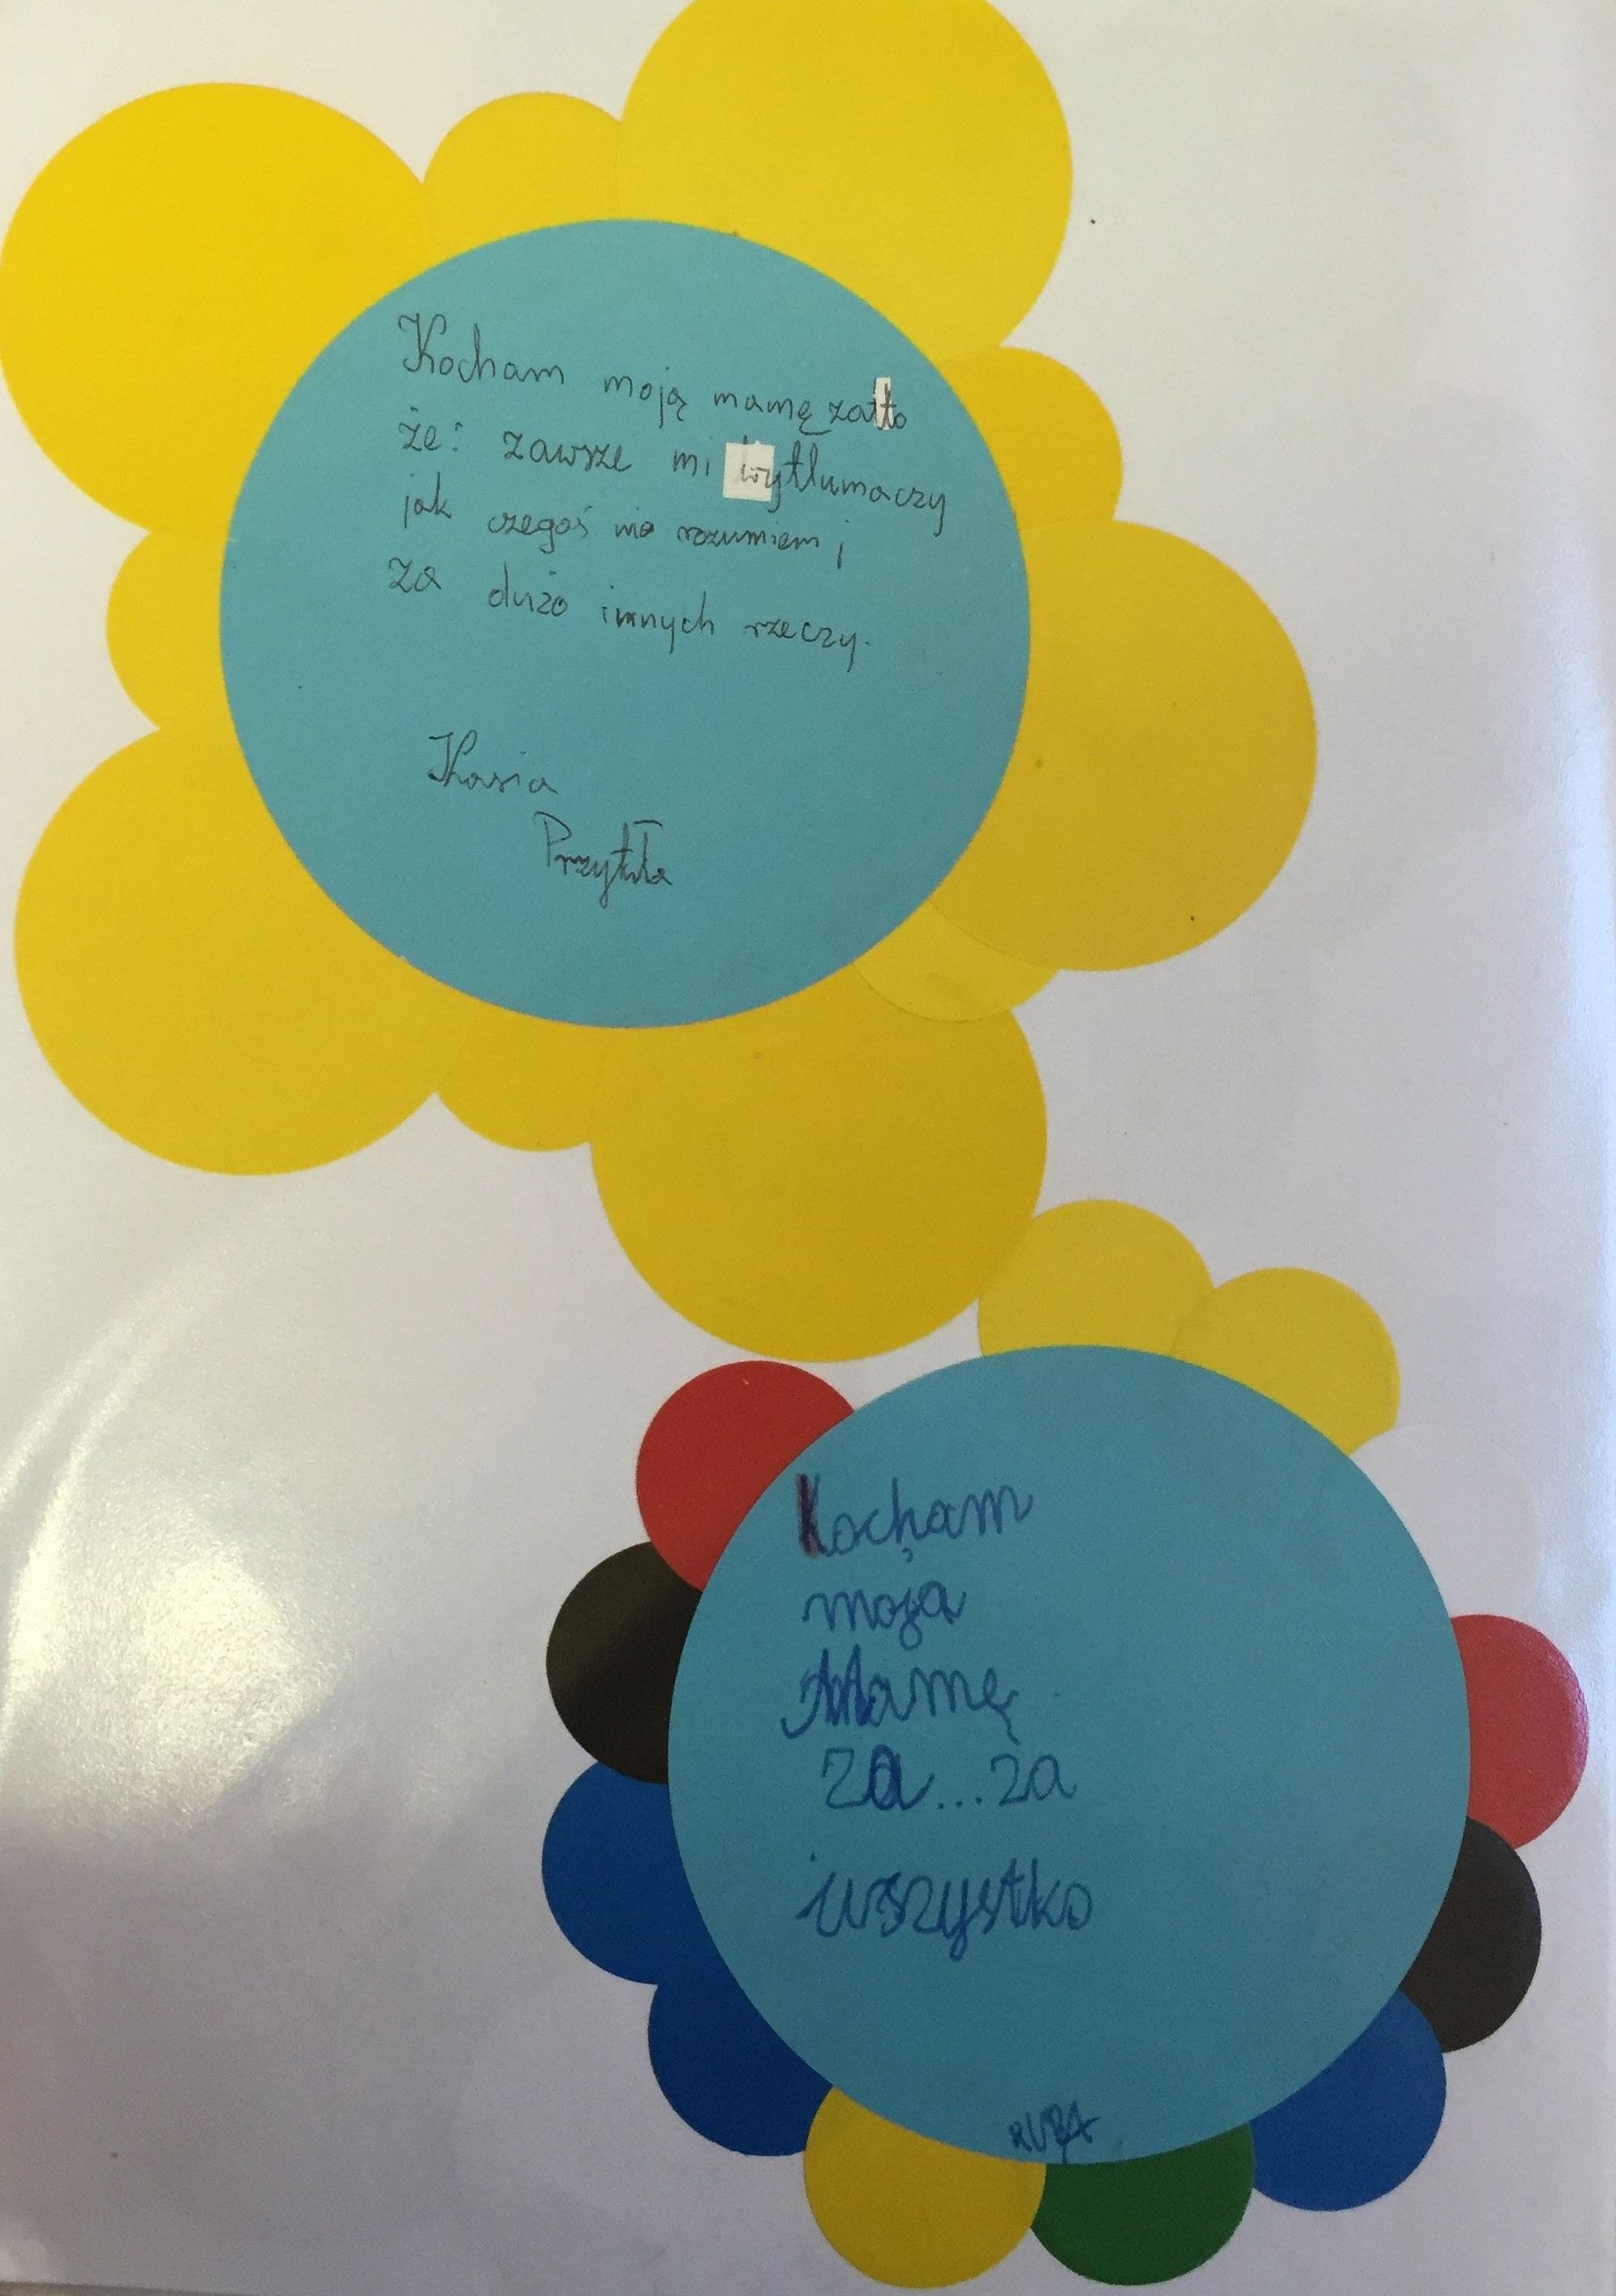 Kocham moją mamę za to
że: zawsze mi wytłumaczy
jak czegoś nie rozumiem i
za dużo innych rzeczy.
Kasia
Kocham
moja
Mamę
za...za
wszystko